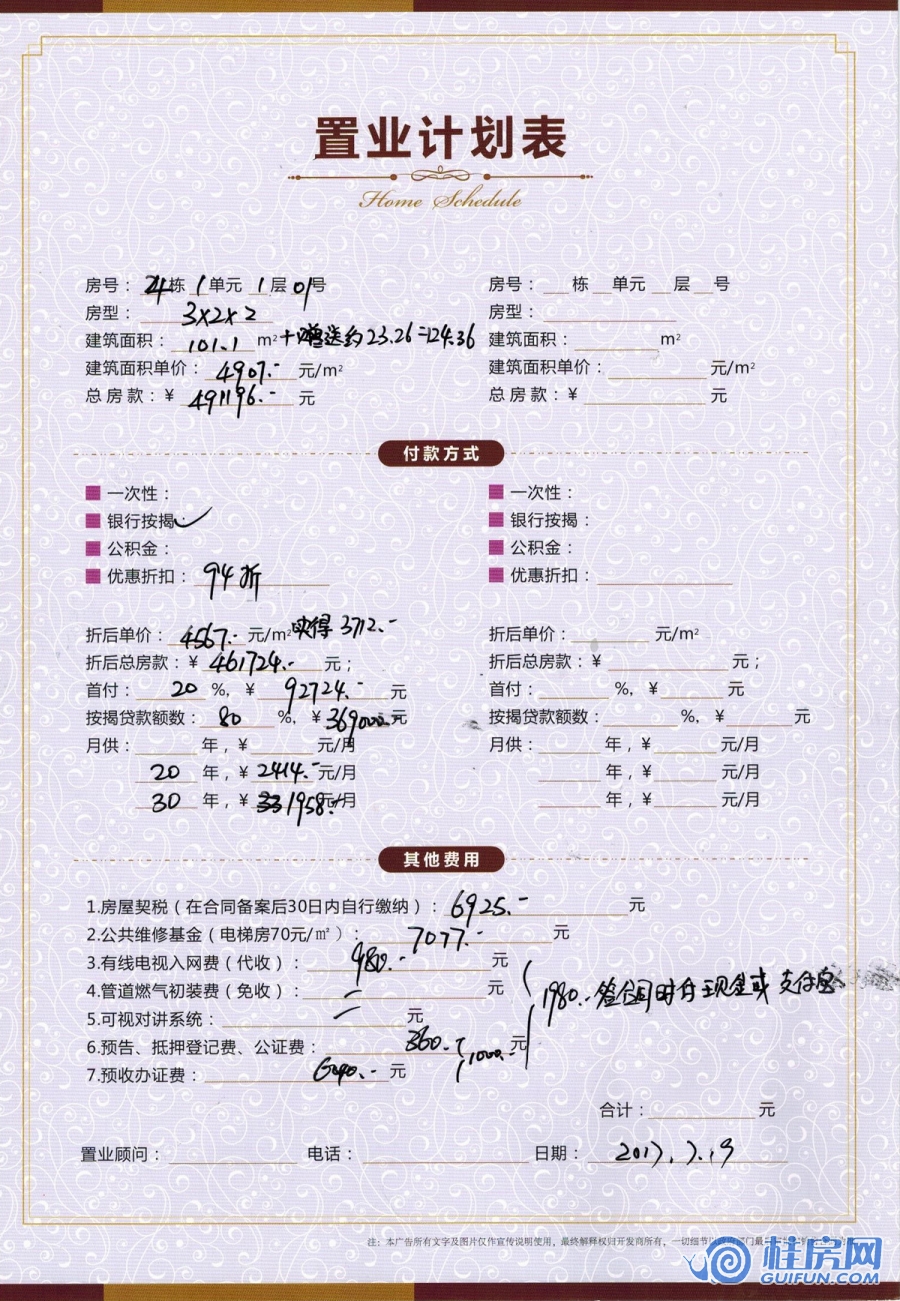 置业计划表
Home Schedule
房号：24栋 1单元 1层 01号
房型：3×2×2
建筑面积：101.1 m² +赠送约23.26=124.36
建筑面积单价：4907.- 元/m²
总房款：¥ 491196.- 元
房号：栋 单元 层 号
房型：
建筑面积：m²
建筑面积单价：元/m²
总房款：¥ 元
付款方式
一次性：
银行按揭：✓
公积金：
优惠折扣：94折
一次性：
银行按揭：
公积金：
优惠折扣：
折后单价：4567.- 元/m² 实得3712.-
折后总房款：¥ 461724.- 元；
首付：20 %, ¥ 92724.- 元
按揭贷款额数：80 %, ¥ 369000.- 元
月供：年，¥ 元/月
20 年，¥ 2414.- 元/月
30 年，¥ 1958.- 元/月
折后单价：元/m²
折后总房款：¥ 元；
首付：%, ¥ 元
按揭贷款额数：%, ¥ 元
月供：年，¥ 元/月
年，¥ 元/月
年，¥ 元/月
其他费用
1.房屋契税（在合同备案后30日内自行缴纳）：6925.- 元
2.公共维修基金（电梯房70元/㎡）：7077.- 元
3.有线电视入网费（代收）：980.- 元
4.管道燃气初装费（免收）：— 元
5.可视对讲系统：— 元
6.预告、抵押登记费、公证费：360.- 元
7.预收办证费：640.- 元
1000.-
1980.- 签合同时付现金或支付宝
合计：元
置业顾问： 电话： 日期：2017.7.19
注：本广告所有文字及图片仅作宣传说明使用，最终解释权归开发商所有，一切细节以政府部门最
桂房网
GUIFUN.COM